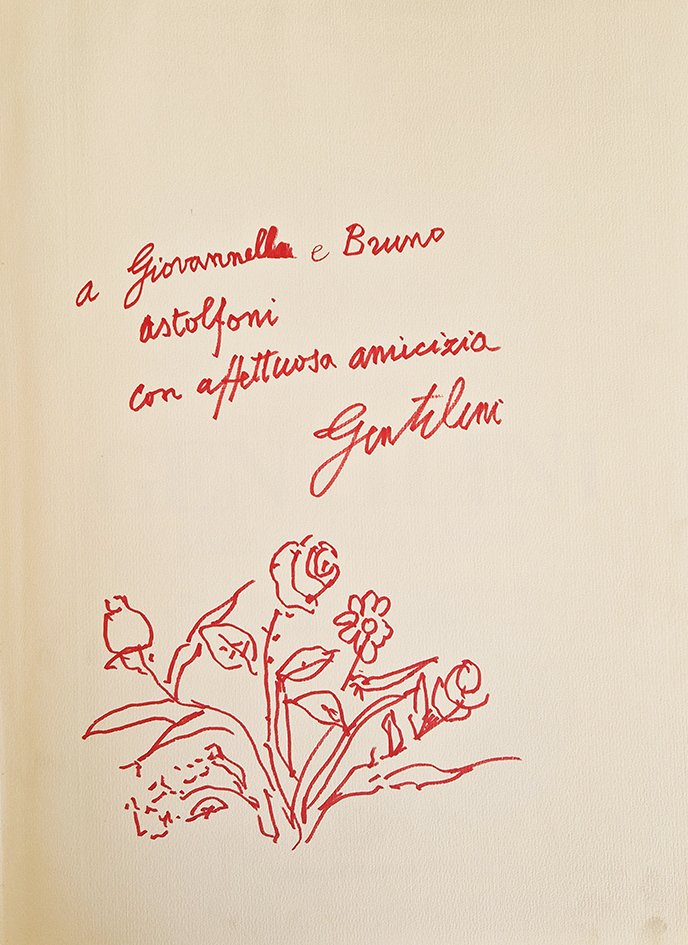 a Giovannella e Bruno
astolfoni
con affettuosa amicizia
Gentilini